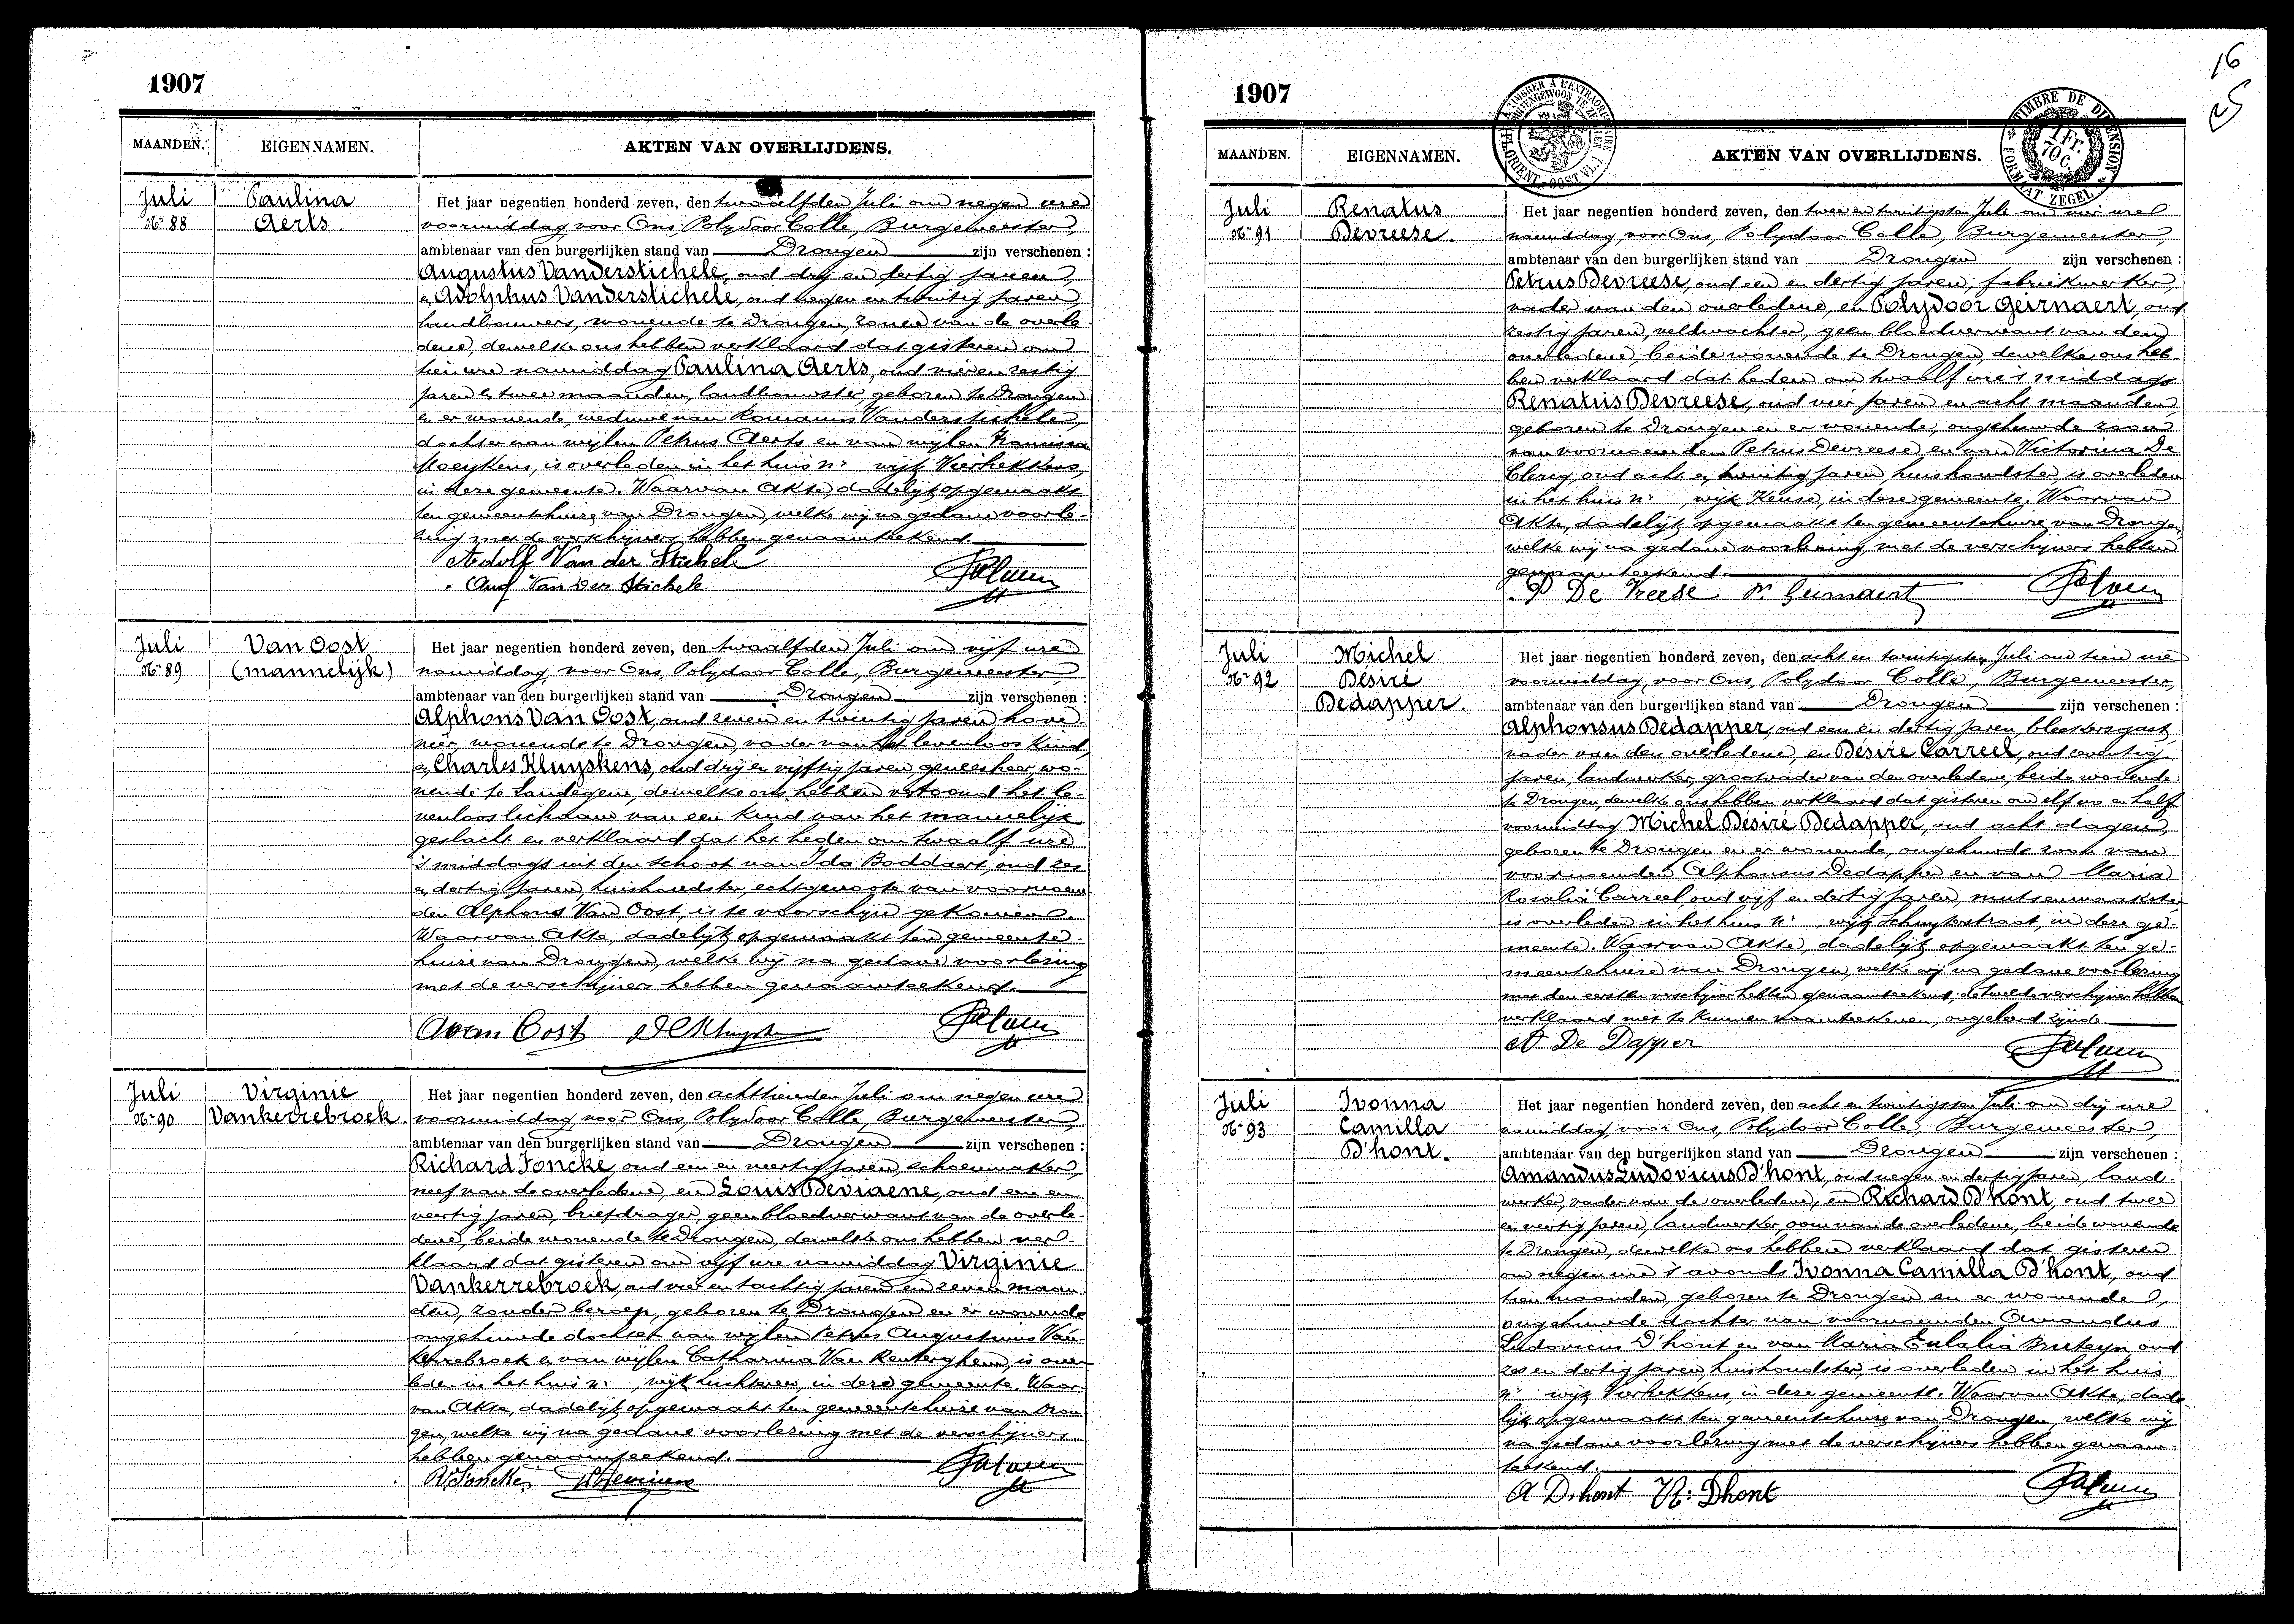 1907
MAANDEN. EIGENNAMEN. AKTEN VAN OVERLIJDENS.
Juli
Nr 88
Paulina
Aerts.
Het jaar negentien honderd zeven, den twaalfden Juli om negen ure
voormiddag voor Ons, Polydoor Colle, Burgemeester,
ambtenaar van den burgerlijken stand van Drongen zijn verschenen :
Augustus Vanderstichele, oud drij en dertig jaren,
en Adolphus Vanderstichele, oud negen en twintig jaren,
landbouwers, wonende te Drongen, zonen van de overle-
dene, dewelke ons hebben verklaard dat gisteren om
tien ure namiddag Paulina Aerts, oud vier en zestig
jaren en twee maanden, landbouwster, geboren te Drongen
en er wonende, weduwe van Romanus Vanderstichele,
dochter van wijlen Petrus Aerts en van wijlen Francisca
Moeykens, is overleden in het huis nr wijk Vierhekkens,
in deze gemeente. Waarvan Akte, dadelijk opgemaakt
ten gemeentehuize van Drongen, welke wij na gedane voorle-
zing met de verschijners hebben genaamteekend.
Adolf Van der Stichele
Aug Van Der Stichele
Juli
Nr 89
Van Oost
(mannelijk)
Het jaar negentien honderd zeven, den twaalfden Juli om vijf ure
namiddag, voor Ons, Polydoor Colle, Burgemeester,
ambtenaar van den burgerlijken stand van Drongen zijn verschenen :
Alphons Van Oost, oud zeven en twintig jaren, hove-
nier, wonende te Drongen, vader van het levenloos kind,
en Charles Kluyskens, oud drij en vijftig jaren, geneesheer, wo-
nende te Landegem, dewelke ons hebben vertoond het le-
venloos lichaam van een kind van het mannelijk
geslacht en verklaard dat het heden om twaalf ure
's middags uit den schoot van Ida Boddaert, oud zes
en dertig jaren, huishoudster, echtgenoote van voornoem-
den Alphons Van Oost, is te voorschijn gekomen.
Waarvan Akte, dadelijk opgemaakt ten gemeente-
huize van Drongen, welke wij na gedane voorlezing
met de verschijners hebben genaamteekend.
A van Oost
Juli
Nr 90
Virginie
Vankerrebroek.
Het jaar negentien honderd zeven, den achttienden Juli om negen ure
voormiddag, voor Ons, Polydoor Colle, Burgemeester,
ambtenaar van den burgerlijken stand van Drongen zijn verschenen :
Richard Joncke, oud een en veertig jaren, schoenmaker,
neef van de overledene, en Louis Deviaene, oud een en
veertig jaren, briefdrager, geen bloedverwant van de overle-
dene, beide wonende te Drongen, dewelke ons hebben ver-
klaard dat gisteren om vijf ure namiddag Virginie
Vankerrebroek, oud vier en tachtig jaren en zeven maan-
den, zonder beroep, geboren te Drongen en er wonende
ongehuwde dochter van wijlen Petrus Augustinus Van-
kerrebroek en van wijlen Catharina Van Renterghem, is over-
leden in het huis nr wijk Luchteren, in deze gemeente. Waar-
van Akte, dadelijk opgemaakt ten gemeentehuize van Dron-
gen, welke wij na gedane voorlezing met de verschijners
hebben genaamteekend.
R. Joncke
1907
MAANDEN. EIGENNAMEN. AKTEN VAN OVERLIJDENS.
TIMBRE DE DIMENSION
1 Fr.
70 C.
FORMAAT ZEGEL
16
Juli
Nr 91
Renatus
Devreese.
Het jaar negentien honderd zeven, den twee en twintigsten Juli om vier ure
namiddag, voor Ons, Polydoor Colle, Burgemeester,
ambtenaar van den burgerlijken stand van Drongen zijn verschenen :
Petrus Devreese, oud een en dertig jaren, fabriekwerker,
vader van den overledene, en Polydoor Geirnaert, oud
zestig jaren, veldwachter, geen bloedverwant van den
overledene, beide wonende te Drongen, dewelke ons heb-
ben verklaard dat heden om twaalf ure 's middags
Renatus Devreese, oud vier jaren en acht maanden,
geboren te Drongen en er wonende, ongehuwde zoon
van voornoemden Petrus Devreese en van Victorina De
Clercq, oud acht en twintig jaren, huishoudster, is overleden
in het huis nr , wijk Keuse, in deze gemeente. Waarvan
Akte, dadelijk opgemaakt ten gemeentehuize van Drongen,
welke wij na gedane voorlezing met de verschijners hebben
genaamteekend.
P De Vreese P. Geirnaert
Juli
Nr 92
Michel
Désiré
Dedapper.
Het jaar negentien honderd zeven, den acht en twintigsten Juli om tien ure
voormiddag, voor Ons, Polydoor Colle, Burgemeester,
ambtenaar van den burgerlijken stand van Drongen zijn verschenen :
Alphonsus Dedapper, oud een en dertig jaren, bleekersgast,
vader van den overledene, en Désiré Carreel, oud zeventig
jaren, landwerker, grootvader van den overledene, beide wonende
te Drongen, dewelke ons hebben verklaard dat gisteren om elf ure en half
voormiddag Michel Désiré Dedapper, oud acht dagen,
geboren te Drongen en er wonende, ongehuwde zoon van
voornoemden Alphonsus Dedapper en van Maria
Rosalia Carreel, oud vijf en dertig jaren, mutsenmaakster
is overleden in het huis nr , wijk Schuyterstraat, in deze ge-
meente. Waarvan Akte, dadelijk opgemaakt ten ge-
meentehuize van Drongen, welke wij na gedane voorlezing
met den eersten verschijner hebben genaamteekend, de tweede verschijner hebben
verklaard niet te kunnen naamteekenen, ongeleerd zijnde.
A De Dapper
Juli
Nr 93
Ivonna
Camilla
D'hont.
Het jaar negentien honderd zeven, den acht en twintigsten Juli om drij ure
namiddag, voor Ons, Polydoor Colle, Burgemeester,
ambtenaar van den burgerlijken stand van Drongen zijn verschenen :
Amandus Ludovicus D'hont, oud negen en dertig jaren, land-
werker, vader van de overledene, en Richard D'hont, oud twee
en veertig jaren, landwerker, oom van de overledene, beide wonende
te Drongen, dewelke ons hebben verklaard dat gisteren
om negen ure 's avonds Ivonna Camilla D'hont, oud
tien maanden, geboren te Drongen en er wonende,
ongehuwde dochter van voornoemden Amandus
Ludovicus D'hont en van Maria Eulalia Bruteyn, oud
zes en dertig jaren, huishoudster, is overleden in het huis
nr wijk Vierhekkens, in deze gemeente. Waarvan Akte, dade-
lijk opgemaakt ten gemeentehuize van Drongen, welke wij
na gedane voorlezing met de verschijners hebben genaam-
teekend.
A D'hont R. Dhont